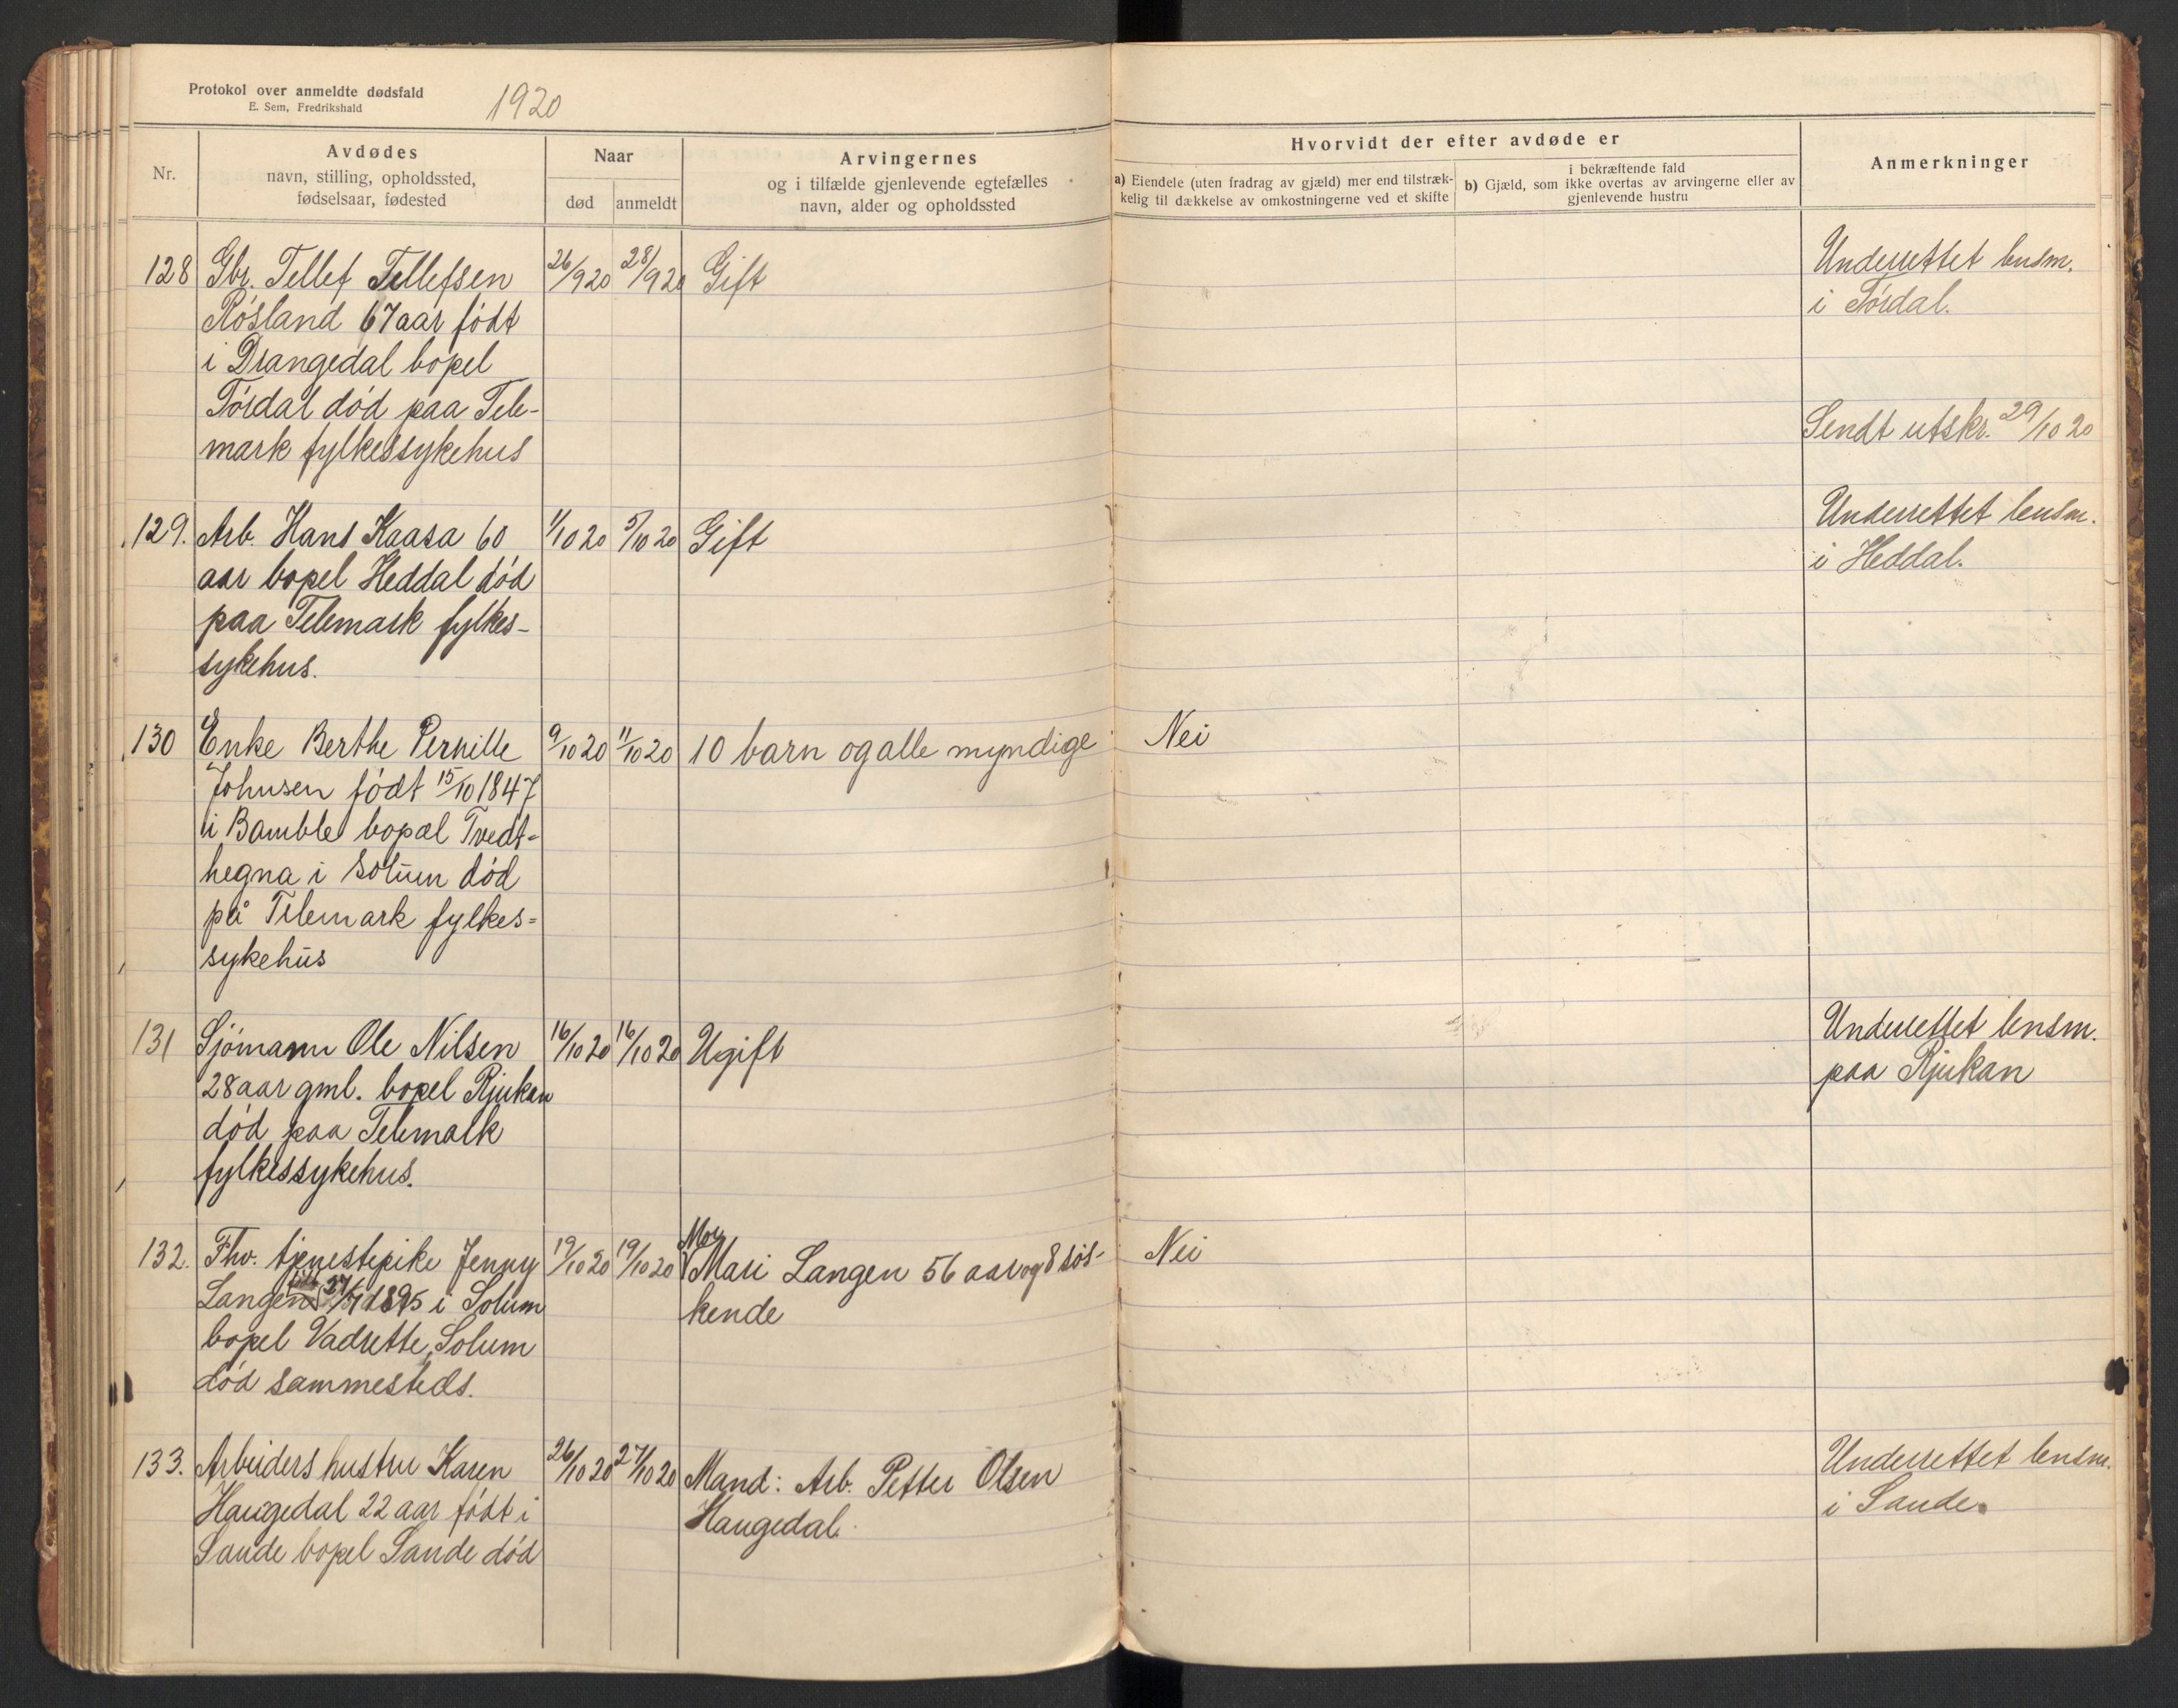 Protokol over anmeldte dødsfald
E. Sem, Fredrikshald
1920
Nr.
Avdødes
navn, stilling, opholdssted,
fødselsaar, fødested
Naar
død
anmeldt
Arvingernes
og i tilfælde gjenlevende egtefælles
navn, alder og opholdssted
Hvorvidt der efter avdøde er
a) Eiendele (uten fradrag av gjæld) mer end tilstræk-
kelig til dækkelse av omkostningerne ved et skifte
i bekræftende fald
b) Gjæld, som ikke overtas av arvingerne eller av
gjenlevende hustru
Anmerkninger
128 Gbr. Tellef Tellefsen 26/9 20 28/9 20 Gift
Røsland 67 aar født
i Drangedal bopel
Tørdal død paa Tele-
mark fylkessykehus
Underrettet lensm.
i Tørdal.
Sendt utskr. 29/10 20
129. Arb. Hans Kaasa 60 1/10 20 5/10 20 Gift
aar bopel Heddal død
paa Telemark fylkes-
sykehus.
Underrettet lensm.
i Heddal.
130 Enke Berthe Pernille 9/10 20 11/10 20 10 barn og alle myndige Nei
Johnsen født 15/10 1847
i Bamble bopæl Tvedt-
hegna i Solum død
på Telemark fylkes=
sykehus
131 Sjömann Ole Nilsen 16/10 20 16/10 20 Ugift
28 aar gml. bopel Rjukan
død paa Telemark
fylkessykehus.
Underrettet lensm.
paa Rjukan
132. Fhv. tjenestepike Jenny 19/10 20 19/10 20 Mor Mari Langen 56 aar og 8 søs- Nei
kende
Langen 1895 i Solum
bopel Vadrette, Solum
død sammesteds.
133. Arbeiders hustru Karen 26/10 20 27/10 20 Mand: Arb. Petter Olsen
Haugedal.
Haugedal 22 aar født i
Sande bopel Sande død
Underrettet lensm.
i Sande.